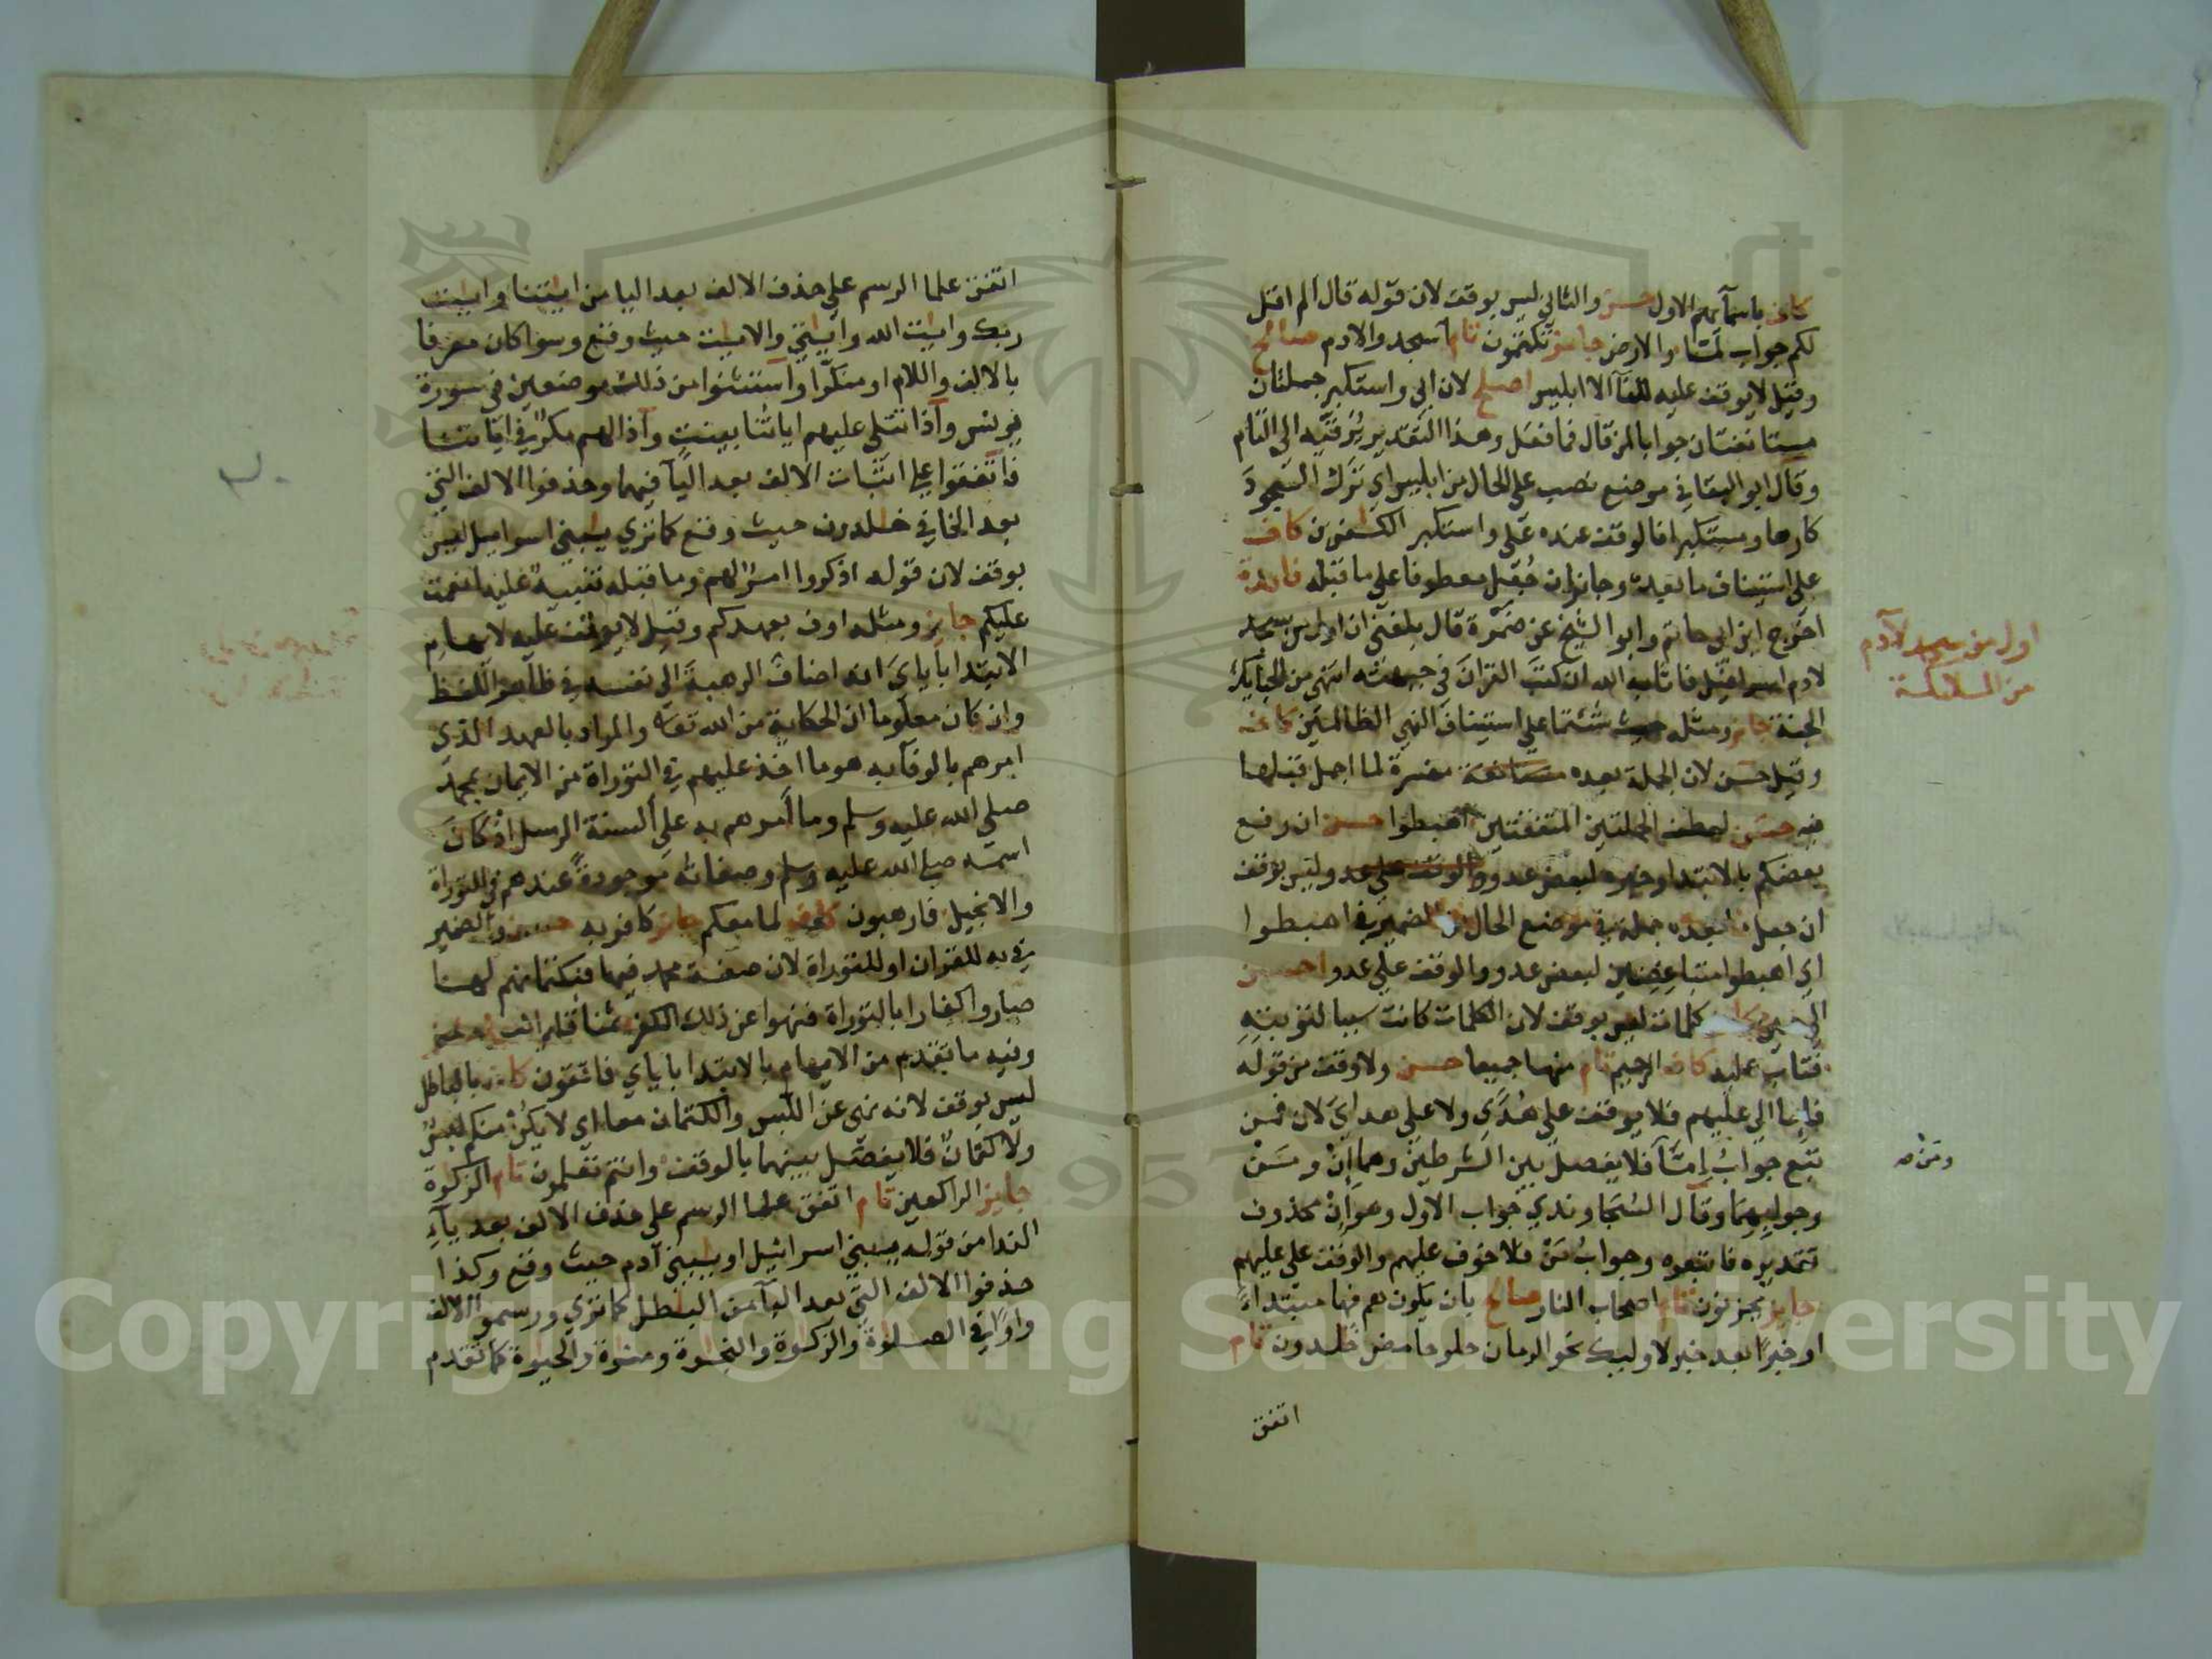 كاف باسمآئهم الاول حسن والثاني ليس بوقف لان قوله قال الم اقل
لكم جواب لمّا والارض جائز تكتمون تام اسجدوا لادم صالح
وقيل لا يوقف عليه للفآ الا ابليس اصلح لان ابى واستكبر جملتان
مستانفتان جوابا لمن قال فما فعل وهذا التقدير يُرقيه الى التام
وقال ابو البقا في موضع نصب على الحال من ابليس اي ترك السجود
كارها ومستكبرا فالوقف عنده على واستكبر الكفرين كاف
على استيناف ما بعده وجائز ان جُعل معطوفا على ما قبله فائدة
اخرج ابن ابي حاتم وابو الشيخ عن ضمرة قال بلغني ان اول من سجد
لادم اسرافيل فاثابه الله ان كتب القران في جبهته انتهى من الحبايك
الجنة جائز ومثله حيث شئتما على استيناف النهي الظالمين كاف
وقيل حسن لان الجملة بعده مفسرة لما اجمل قبلها
فيه حسن لعطف الجملتين المتفقتين اهبطوا حسن ان رفع
بعضكم بالابتدا وخبره لبعض عدو والوقف على عدو وليس بوقف
ان جعل ما بعده جملة في موضع الحال من الضمير في اهبطوا
اي اهبطوا متباغضين لبعض عدو والوقف على عدو احسن
الى حين كاف كلمات ليس بوقف لان الكلمات كانت سببا لتوبته
فتاب عليه كاف الرحيم تام منها جميعا حسن ولا وقف من قوله
فإما الى عليهم فلا يوقف على هُدًى ولا على هداي لان فمن
تبع جوابُ إمّا فلا يفصل بين الشرطين وهما إنْ ومَنْ
وجوابهما وقال السُجاوندي جواب الاول وهو إنْ محذوف
تقديره فاتبعوه وجوابُ مَنْ فلا خوف عليهم والوقف على عليهم
جايز يحزنون تام اصحاب النار صالح بان يكون هم فيها مبتداءً
او خبرًا بعد خبر لاوليك نحو الرمان حلو حامض خلدون تام
اتفق
اول من سجد لآدم
من الملائكة
ومَنْ صح
اتفق علما الرسم على حذف الالف بعد اليا من ايتنا وايت
ربك وايت الله وايتي والايت حيث وقع وسوا كان معرفا
بالالف واللام او منكرًا واستثنوا من ذلك موضعين في سورة
يونس وآذا تتلى عليهم اياتنا بينت وآذا لهم مكرٌ في اياتنا
فاتفقوا على اثبات الالف بعد اليآ فيهما وحذفوا الالف التي
بعد الخا في خلدون حيث وقع كما ترى يبني اسرايل ليس
بوقف لان قوله اذكروا امرٌ لهم وما قبله تنبيه عليه انعمت
عليكم جايز ومثله اوف بعهدكم وقيل لا يوقف عليه لايهام
الابتدا باياي انه اضاف الرهبة الى نفسه في ظاهر اللفظ
وان كان معلوما ان الحكاية من الله تعا والمراد بالعهد الذي
امرهم بالوفآ به هو ما اخذ عليهم في التوراة من الايمان بمحمد
صلى الله عليه وسلم وما أمرهم به على ألسنة الرسل اذ كان
اسمه صلى الله عليه وسلم وصفاته موجودةً عندهم في التوراة
والانجيل فارهبون كاف لما معكم جائز كافر به حسن والضمير
في به للقران او للتوراة لان صفة محمد فيها فبكتمانهم لها
صاروا كفارا بالتوراة فنهوا عن ذلك الكفر ثمنا قليلا
وفيه ما تقدم من الايهام بالابتدا باياي فاتقون كاف بالباطل
ليس بوقف لانه نهى عن اللّبس والكتمان معا اي لا يكنْ منكم لبسٌ
ولا كتمانٌ فلا يفصّل بينهما بالوقف وانتم تعلمون تام الزكوة
جايز الراكعين تام اتفق علما الرسم على حذف الالف بعد يآءِ
الندا من قوله يبني اسرائيل او يبني آدم حيث وقع وكذا
حذفوا الالف التي بعد البآ من البطل كما ترى ورسموا الالف
واوًا في الصلوة والزكوة والنجوة ومنوة والحيوة كما تقدم